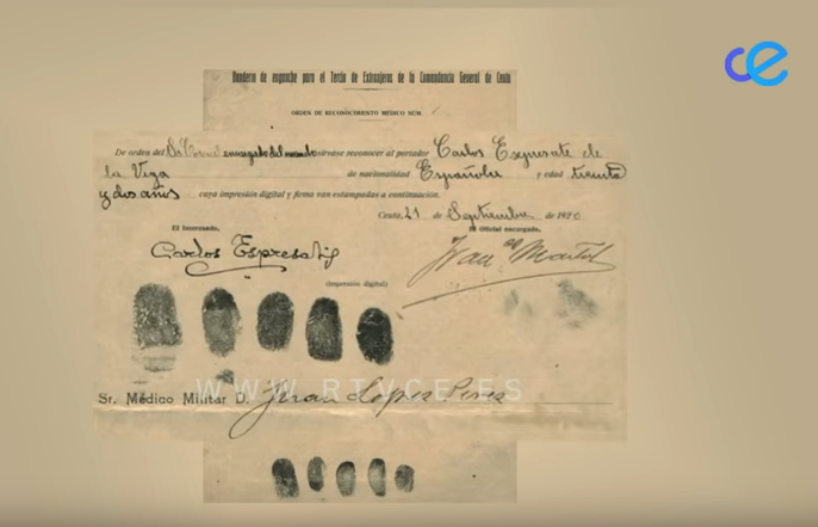 ce
Banderín de enganche para el Tercio de Extranjeros de la Comandancia General de Ceuta
ORDEN DE RECONOCIMIENTO MÉDICO NÚM.
De orden del Sr Coronel encargado del mando sírvase reconocer al portador Carlos Espresate de
la Vega de nacionalidad Española y edad treinta
y dos años cuya impresión digital y firma van estampadas a continuación.
Ceuta, 21 de Septiembre de 1920
El Interesado, El Oficial encargado,
Carlos Espresati
(Impresión digital)
WWW.RTVCE.ES
Sr. Médico Militar D. Juan López Pérez